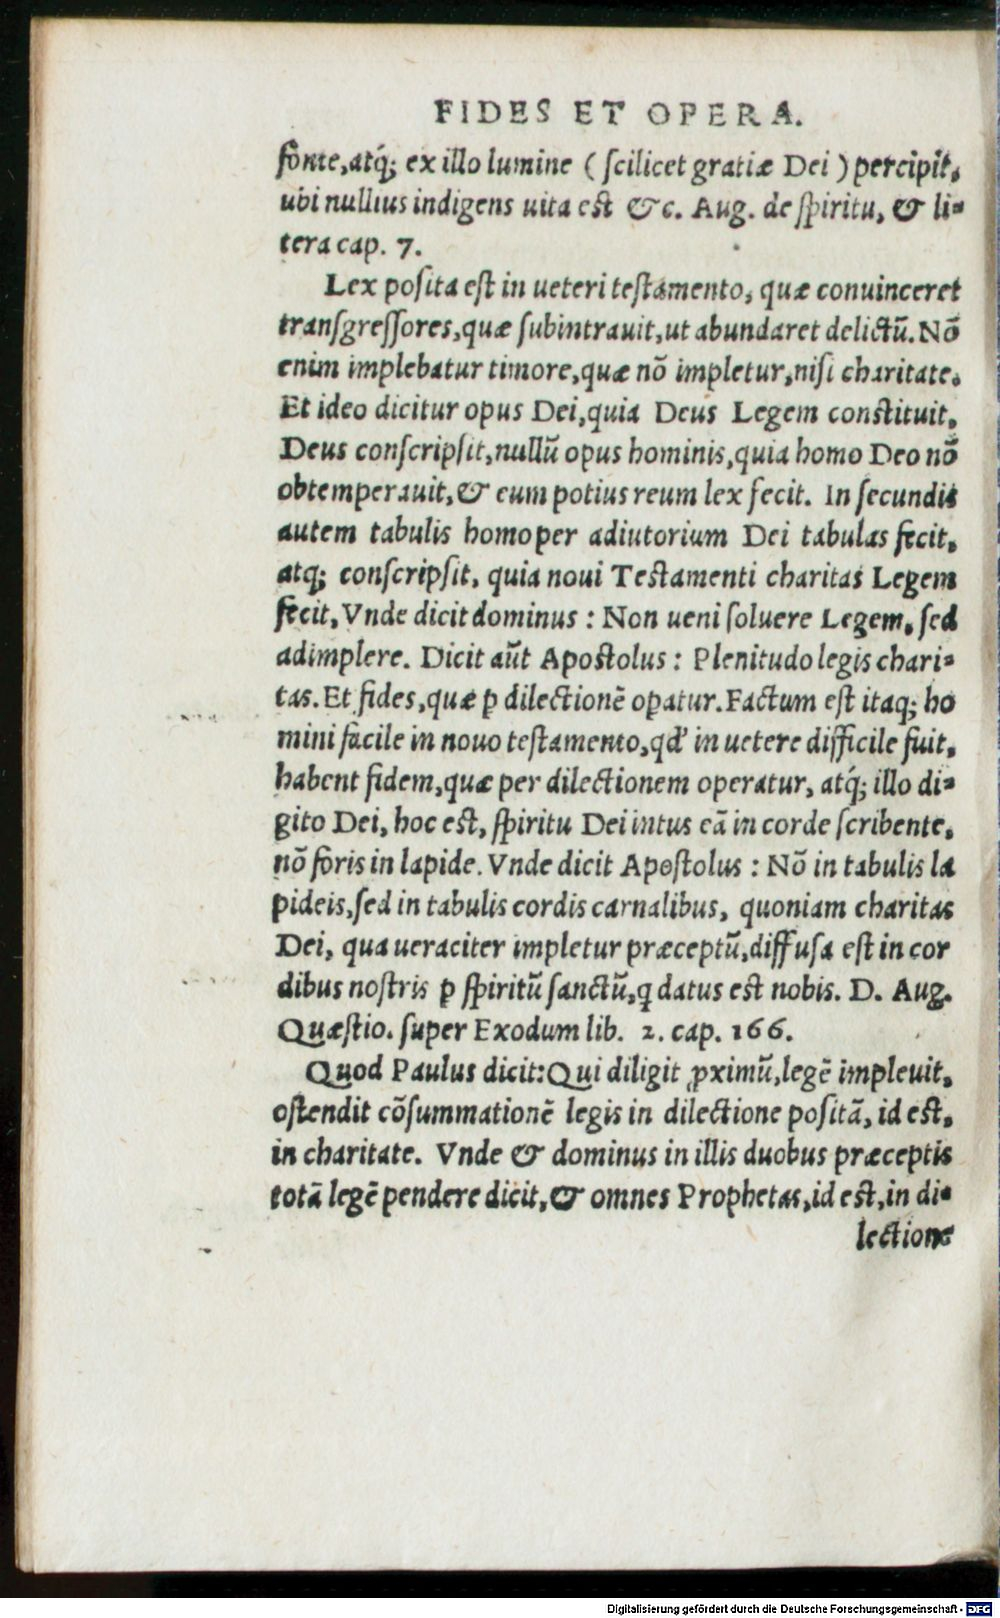 FIDES ET OPERA.
fonte,atq́; ex illo lumine ( ſcilicet gratiæ Dei ) percipit,
ubi nullius indigens uita est &c. Aug. de ſpiritu, & li-
tera cap. 7.
Lex poſita eſt in ueteri teſtamento, quæ conuinceret
tranſgreſſores,quæ ſubintrauit,ut abundaret delictũ. Nõ
enim implebatur timore,quæ nõ impletur,niſi charitate.
Et ideo dicitur opus Dei,quia Deus Legem constituit,
Deus conſcripſit,nullũ opus hominis,quia homo Deo nõ
obtemperauit,& eum potius reum lex fecit. In ſecundis
autem tabulis homo per adiutorium Dei tabulas fecit,
atq; conſcripſit, quia noui Testamenti charitas Legem
fecit, Vnde dicit dominus : Non ueni ſoluere Legem, ſed
adimplere. Dicit aũt Apostolus : Plenitudo legis chari-
tas. Et fides,quæ ꝑ dilectionẽ oꝑatur. Factum eſt itaq; ho
mini facile in nouo teſtamento,qd' in uetere difficile fuit,
habent fidem,quæ per dilectionem operatur, atq́; illo di-
gito Dei, hoc est, ſpiritu Dei intus eã in corde ſcribente,
nõ foris in lapide. Vnde dicit Apoſtolus : Nõ in tabulis la
pideis,ſed in tabulis cordis carnalibus, quoniam charitas
Dei, qua ueraciter impletur præceptũ,diffuſa eſt in cor
dibus noſtris ꝑ ſpiritũ ſanctũ,q datus est nobis. D. Aug.
Quæſtio. ſuper Exodum lib. 2. cap. 166.
Quod Paulus dicit: Qui diligit ꝓximũ,legẽ impleuit,
oſtendit cõſummationẽ legis in dilectione poſitã, id eſt,
in charitate. Vnde & dominus in illis duobus præceptis
totã legẽ pendere dicit,& omnes Prophetas,id eſt,in di-
lectione
Digitalisierung gefördert durch die Deutsche Forschungsgemeinschaft - DFG